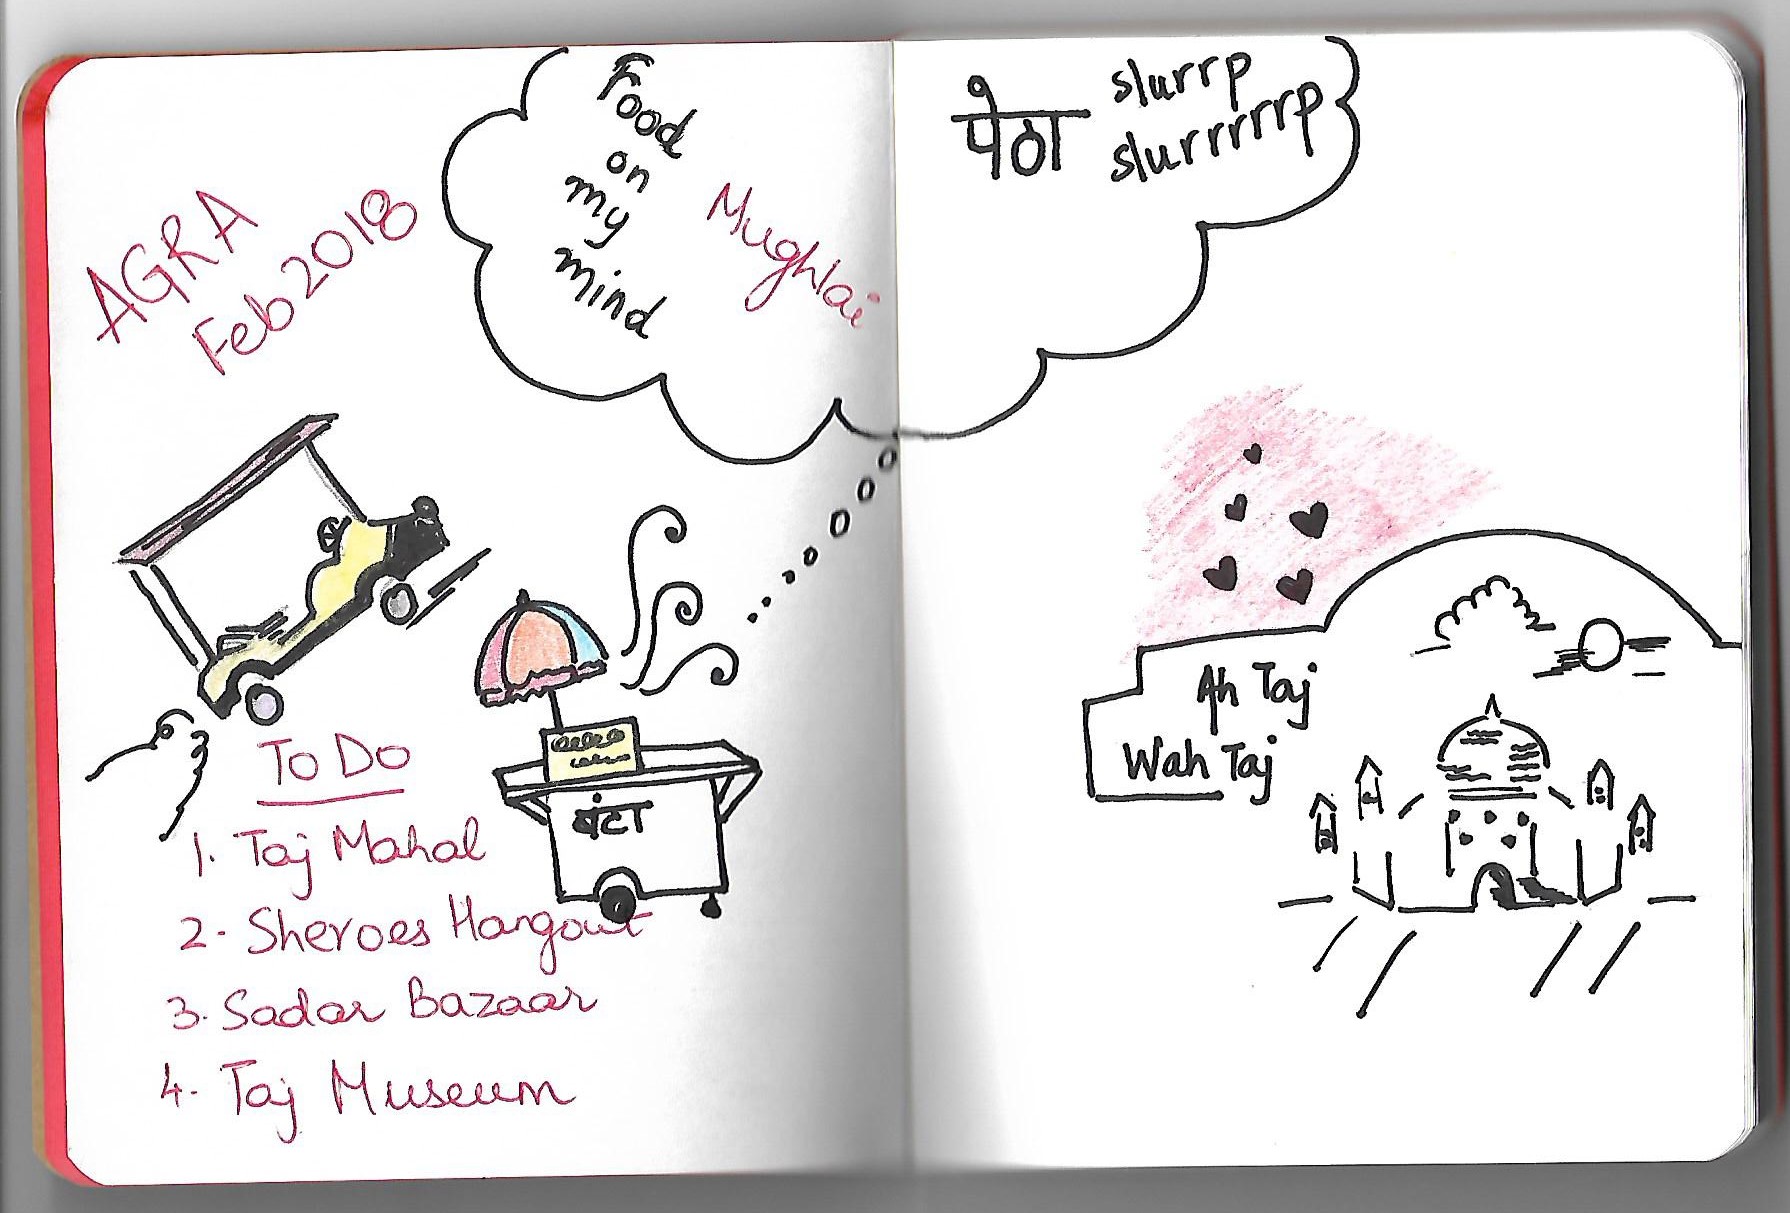 AGRA
Feb 2018
Food
on
my
mind
Mughlai
पेठा
slurrp
slurrrrrrp
To Do
1. Taj Mahal
2- Sheroes Hangout
3. Sadar Bazaar
4- Taj Museum
बंटा
Ah Taj
Wah Taj